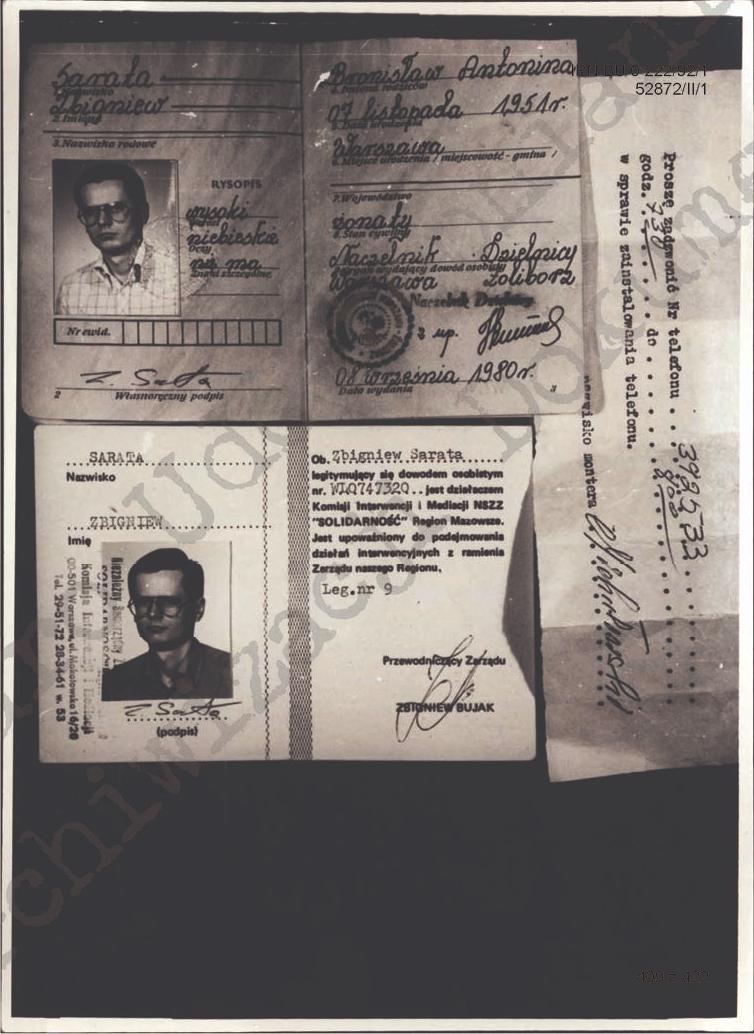 Sarata
1. Nazwisko
Zbigniew
2. Imiona
3. Nazwisko rodowe
RYSOPIS
wysoki
niebieskie
Oczy
nie ma
Znaki szczególne
Nr ewid.
Z. Sarata
2 Własnoręczny podpis
Bronisław Antonina
4. Imiona rodziców
07 listopada 1951 r.
5. Data urodzenia
Warszawa
6. Miejsce urodzenia / miejscowość - gmina /
7. Województwo
żonaty
8. Stan cywilny
Naczelnik Dzielnicy
Organ wydający dowód osobisty
Warszawa Żoliborz
Naczelnik Dzielnicy
z up.
08 września 1980 r.
Data wydania 3
52872/II/1
Proszę zadzwonić Nr telefonu 3925 33
godz. 730 do 800
w sprawie zainstalowania telefonu.
nazwisko montera
SARATA
Nazwisko
ZBIGNIEW
Imię
Niezależny Samorządny
SOLIDARNOŚĆ
Komisja Interwencji i Mediacji
00-501 Warszawa, ul. Mokotowska 16/20
Tel. 29-51-72 28-34-61 w. 53
Z Sarata
(podpis)
Ob. Zbigniew Sarata
legitymujący się dowodem osobistym
nr. WLQ747320 jest działaczem
Komisji Interwencji i Mediacji NSZZ
"SOLIDARNOŚĆ" Region Mazowsze.
Jest upoważniony do podejmowania
działań interwencyjnych z ramienia
Zarządu naszego Regionu.
Leg.nr 9
Przewodniczący Zarządu
ZBIGNIEW BUJAK